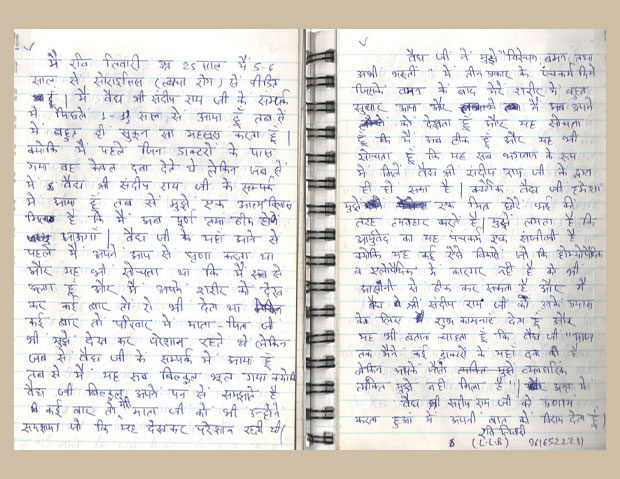 मैं रवि तिवारी उम्र 25 साल मैं 5-6
साल से सोराईसिस (त्वचा रोग) से पीड़ित
हूं। मैं वैद्य श्री संदीप राय जी के सम्पर्क
में पिछले सालों से आया हूं तब से
मैं बहुत ही सुकून सा महसूस करता हूं।
क्योंकि मैं पहले जिन डाक्टरो के पास
गया वह केवल दवा देते थे लेकिन जब से
में वैद्य श्री संदीप राय जी के सम्पर्क
में आया हूं तब से मुझे एक आत्म
है कि मैं अब पूर्ण तया ठीक हो
जाऊगां। वैद्य जी के यहां आने से
पहले मैं अपने आप से घृणा करता था
और यह भी सोचता था कि मैं सब से
अलग हूं और मैं अपने शरीर को देख
कर कई बार तो रो भी देता था लेकिन
कई बार तो परिवार में माता-पिता जी
भी मुझे देख कर परेशान रहते थे लेकिन
जब से वैद्य जी के सम्पर्क में आया हूं
तब से मैं यह सब बिल्कुल भूल गया क्योंकि
वैद्य जी बिल्कुल अपने पन से समझाते है
कई बार तो मेरे माता जी को भी उन्होंने
समझाया जो कि यह देखकर परेशान रहती थी।
वैद्य जी ने मुझे "विरेचन वमन तथा
अभी बस्ती" में तीन प्रकार के पंचकर्म किये
जिसके वमन के बाद मेरे शरीर में बहुत
सुधार आया और मैं अब अपने
को देखता हूं और यह सोचता
हूं कि मैं अब ठीक हूं और यह भी
सोचता हूं कि यह सब भगवान के रूप
में मिले वैद्य श्री संदीप राय जी के द्वारा
ही हो सका है। क्योंकि वैद्य जी हमेशा
मुझसे एक मित्र और भाई की
तरह व्यवहार करते है। मुझे लगता है कि
आयुर्वेद का यह पंचकर्म एक संजीवनी है
क्योंकि यह कई ऐसे बिमारी जो कि होम्योपैथिक
व एलोपैथिक के कारगर नही है को भी
आसानी से ठीक कर सकता है और मैं
वैद्य श्री संदीप राय जी को उनके प्रयास
के लिए शुभ कामनाएं देता हूं और
यह भी बताना चाहता हूं कि वैद्य जी "आज
तक मैंने कई डाक्टरो के यहां दवा की है
लेकिन आपके जैसा व्यक्ति मुझे व्यवहारिक
व्यक्ति मुझे नही मिला है"।
वैद्य श्री संदीप राय जी को प्रणाम
करता हुआ मैं अपनी बात को विराम देता हूं।
रवि तिवारी
(L.L.B)